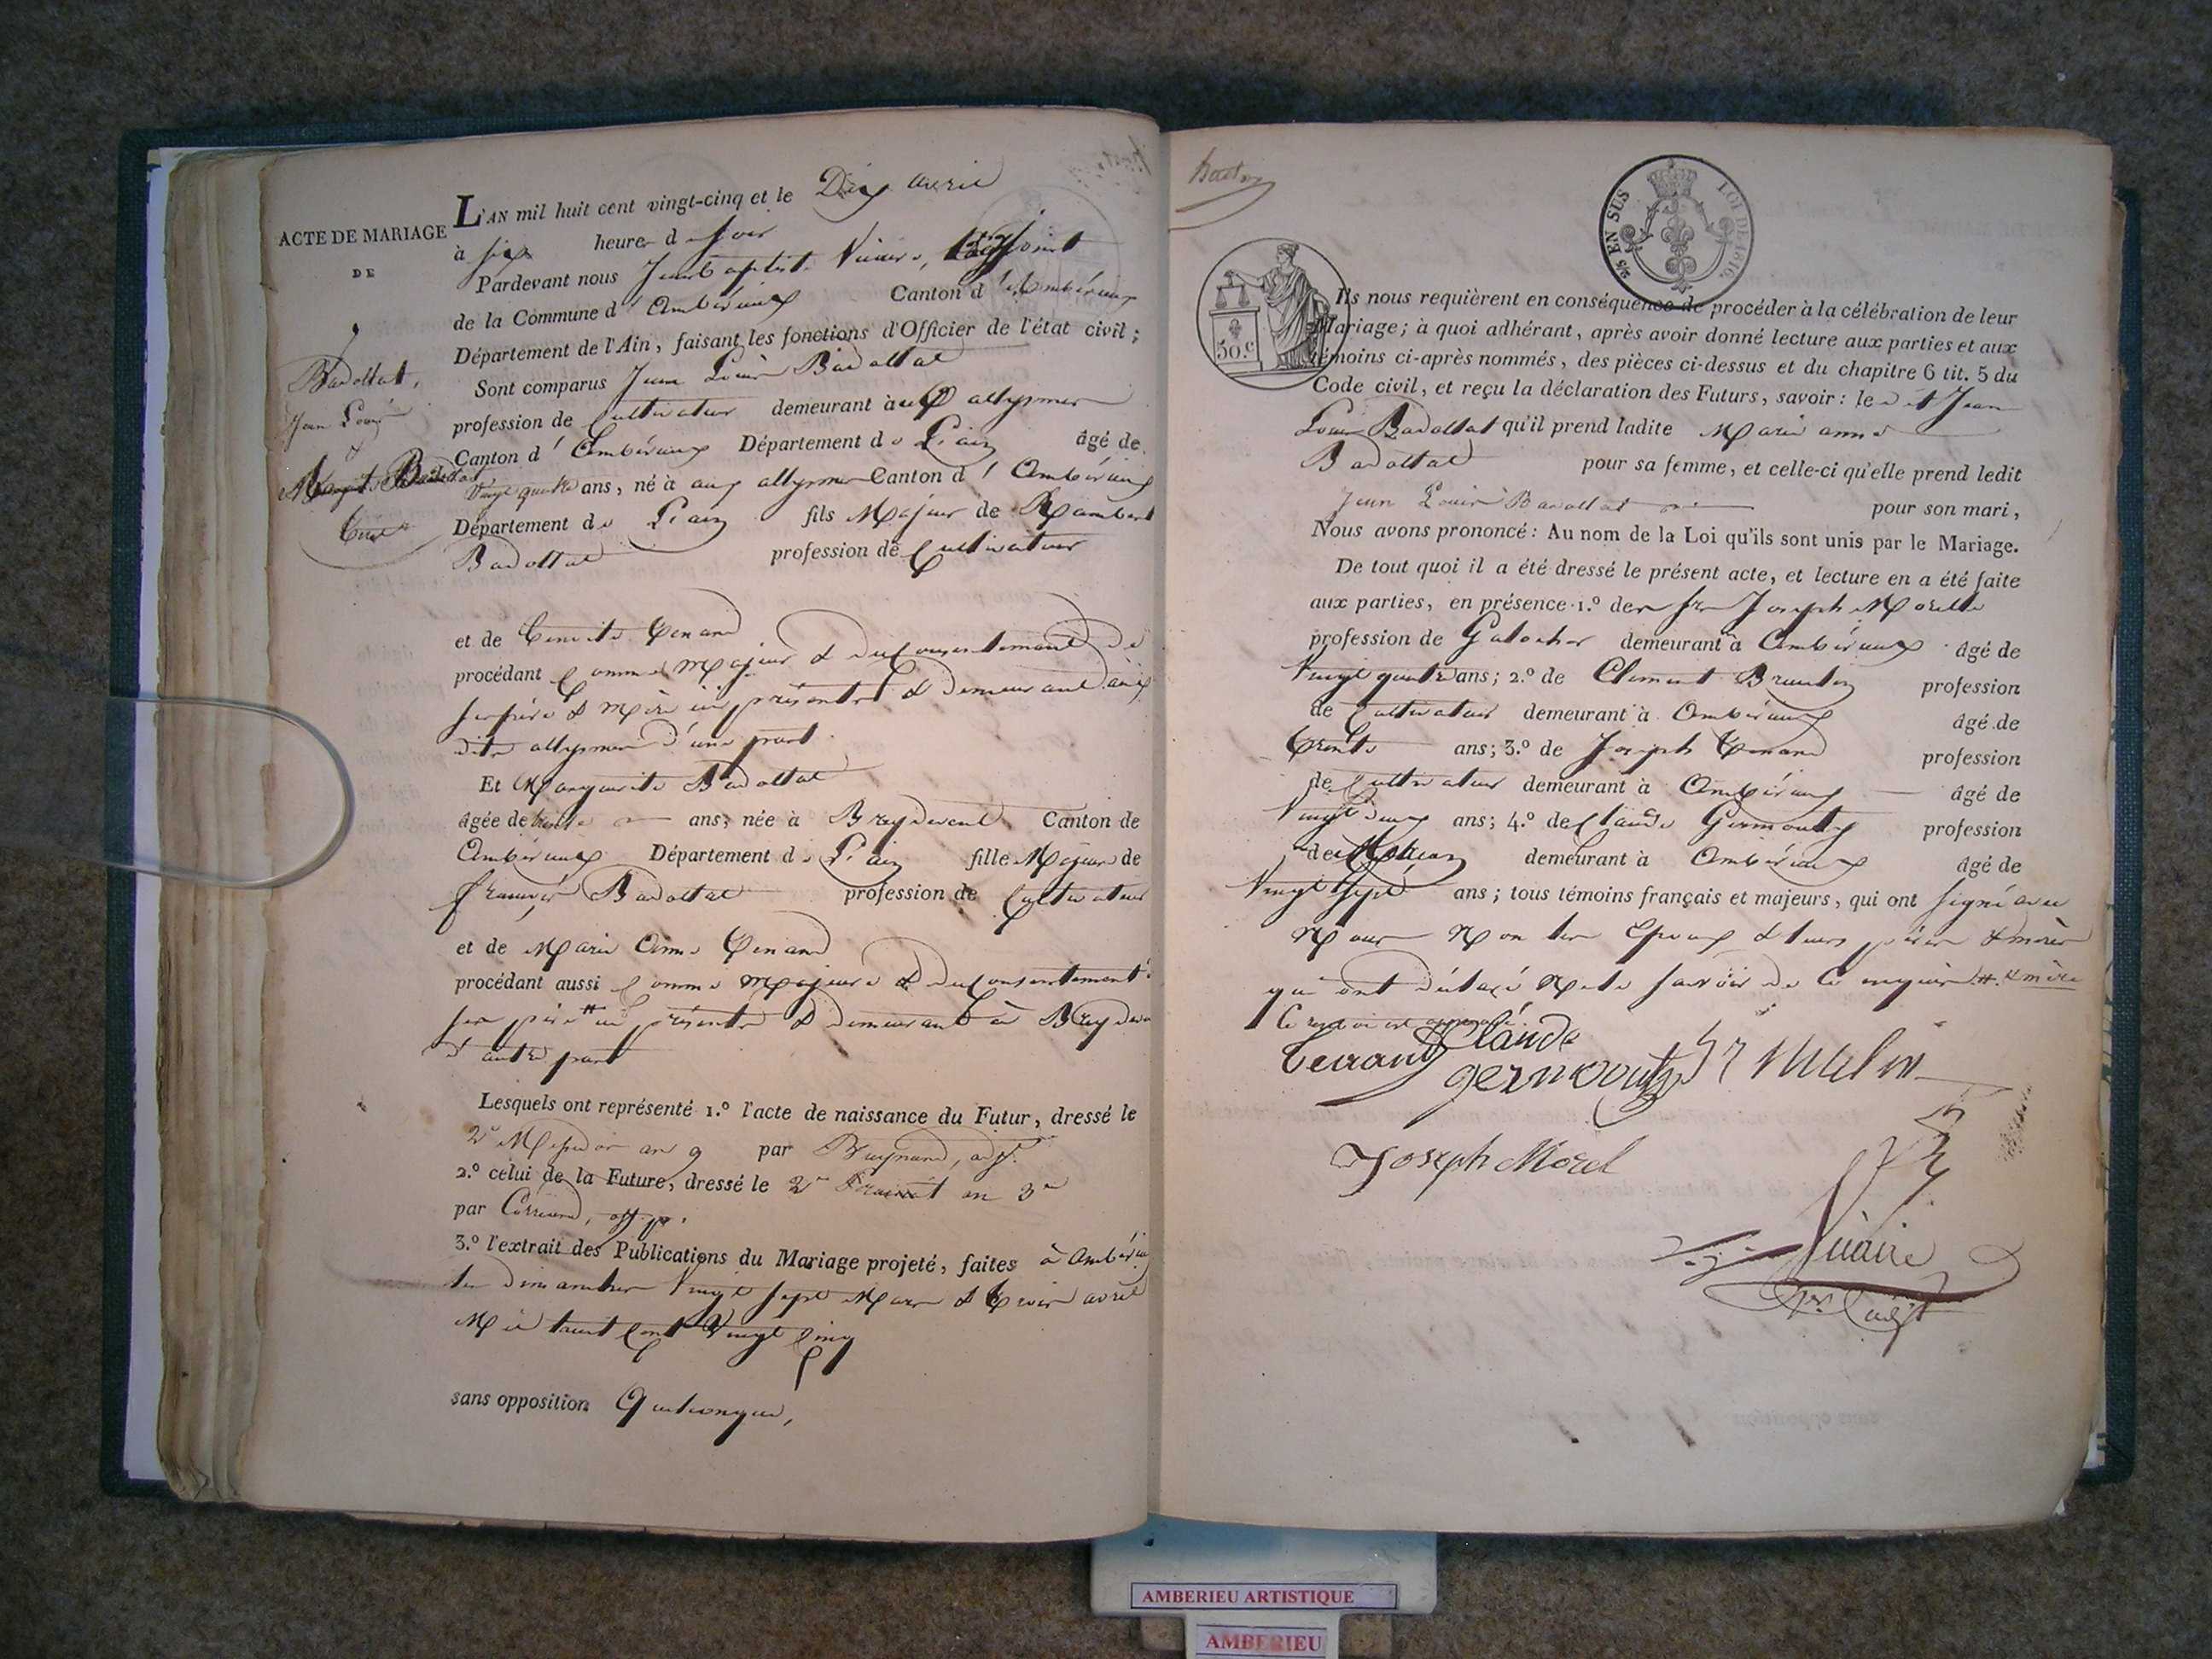 L'AN mil huit cent vingt-cinq et le Dix avril
ACTE DE MARIAGE
DE
à six heures d soir
Pardevant nous Jean Baptiste adjoint
de la Commune d' Ambérieux Canton d' Ambérieux
Département de l'Ain, faisant les fonctions d'Officier de l'état civil;
Badollat,
Jean Louis
&
Badollat
Sont comparus Jean Louis Badollat
profession de Cultivateur demeurant aux allymes
Canton d' Ambérieux Département de L'ain âgé de
Vingt quatre ans, né à aux allymes Canton d' Ambérieux
Département de L'ain fils Majeur de Rambert
Badollat profession de Cultivateur
et de Benoite Tenand
procédant Comme Majeur & du Consentement de
ses père & Mère ici présents & demeurant aux
dits allymes d'une part.
Et Marguerite Badollat
âgée de trente ans, née à Breydevent Canton de
Ambérieux Département de L'ain fille Majeure de
françois Badollat profession de Cultivateur
et de Marie Anne Tenand
procédant aussi Comme Majeure & du Consentement
ses père # ici présents & demeurant à Breydeven
d'autre part
Lesquels ont représenté 1.º l'acte de naissance du Futur, dressé le
2e Messidor an 9 par adjt.
2.º celui de la Future, dressé le 2e an 3e
par off. p.
3.º l'extrait des Publications du Mariage projeté, faites à Ambérieu
les dimanches Vingt sept Mars & trois avril
Mil huit Cent Vingt Cinq
sans opposition Quelconque,
50.c
2/5 EN SUS
LOI DE 1816.
Ils nous requièrent en conséquence de procéder à la célébration de leur
Mariage; à quoi adhérant, après avoir donné lecture aux parties et aux
témoins ci-après nommés, des pièces ci-dessus et du chapitre 6 tit. 5 du
Code civil, et reçu la déclaration des Futurs, savoir: ledit Jean
Louis Badollat qu'il prend ladite Marie anne
Badollat pour sa femme, et celle-ci qu'elle prend ledit
Jean Louis Badollat pour son mari,
Nous avons prononcé: Au nom de la Loi qu'ils sont unis par le Mariage.
De tout quoi il a été dressé le présent acte, et lecture en a été faite
aux parties, en présence 1.º des srs Joseph Morelle
profession de Galocher demeurant à Ambérieux âgé de
Vingt quatre ans; 2.º de Clement profession
de Cultivateur demeurant à Ambérieux âgé de
trente ans; 3.º de Joseph Tenand profession
de Cultivateur demeurant à Ambérieux âgé de
Vingt deux ans; 4.º de Claude Germouty profession
de demeurant à Ambérieux âgé de
Vingt sept ans; tous témoins français et majeurs, qui ont signé avec
Nous Non les Epoux & leurs pères & mères
qui ont déclaré Ne le savoir de Ce enquis. # & mère
Ce renvoi est approuvé.
Tenand Claude
germouty
Joseph Morel
AMBERIEU ARTISTIQUE
AMBERIEU